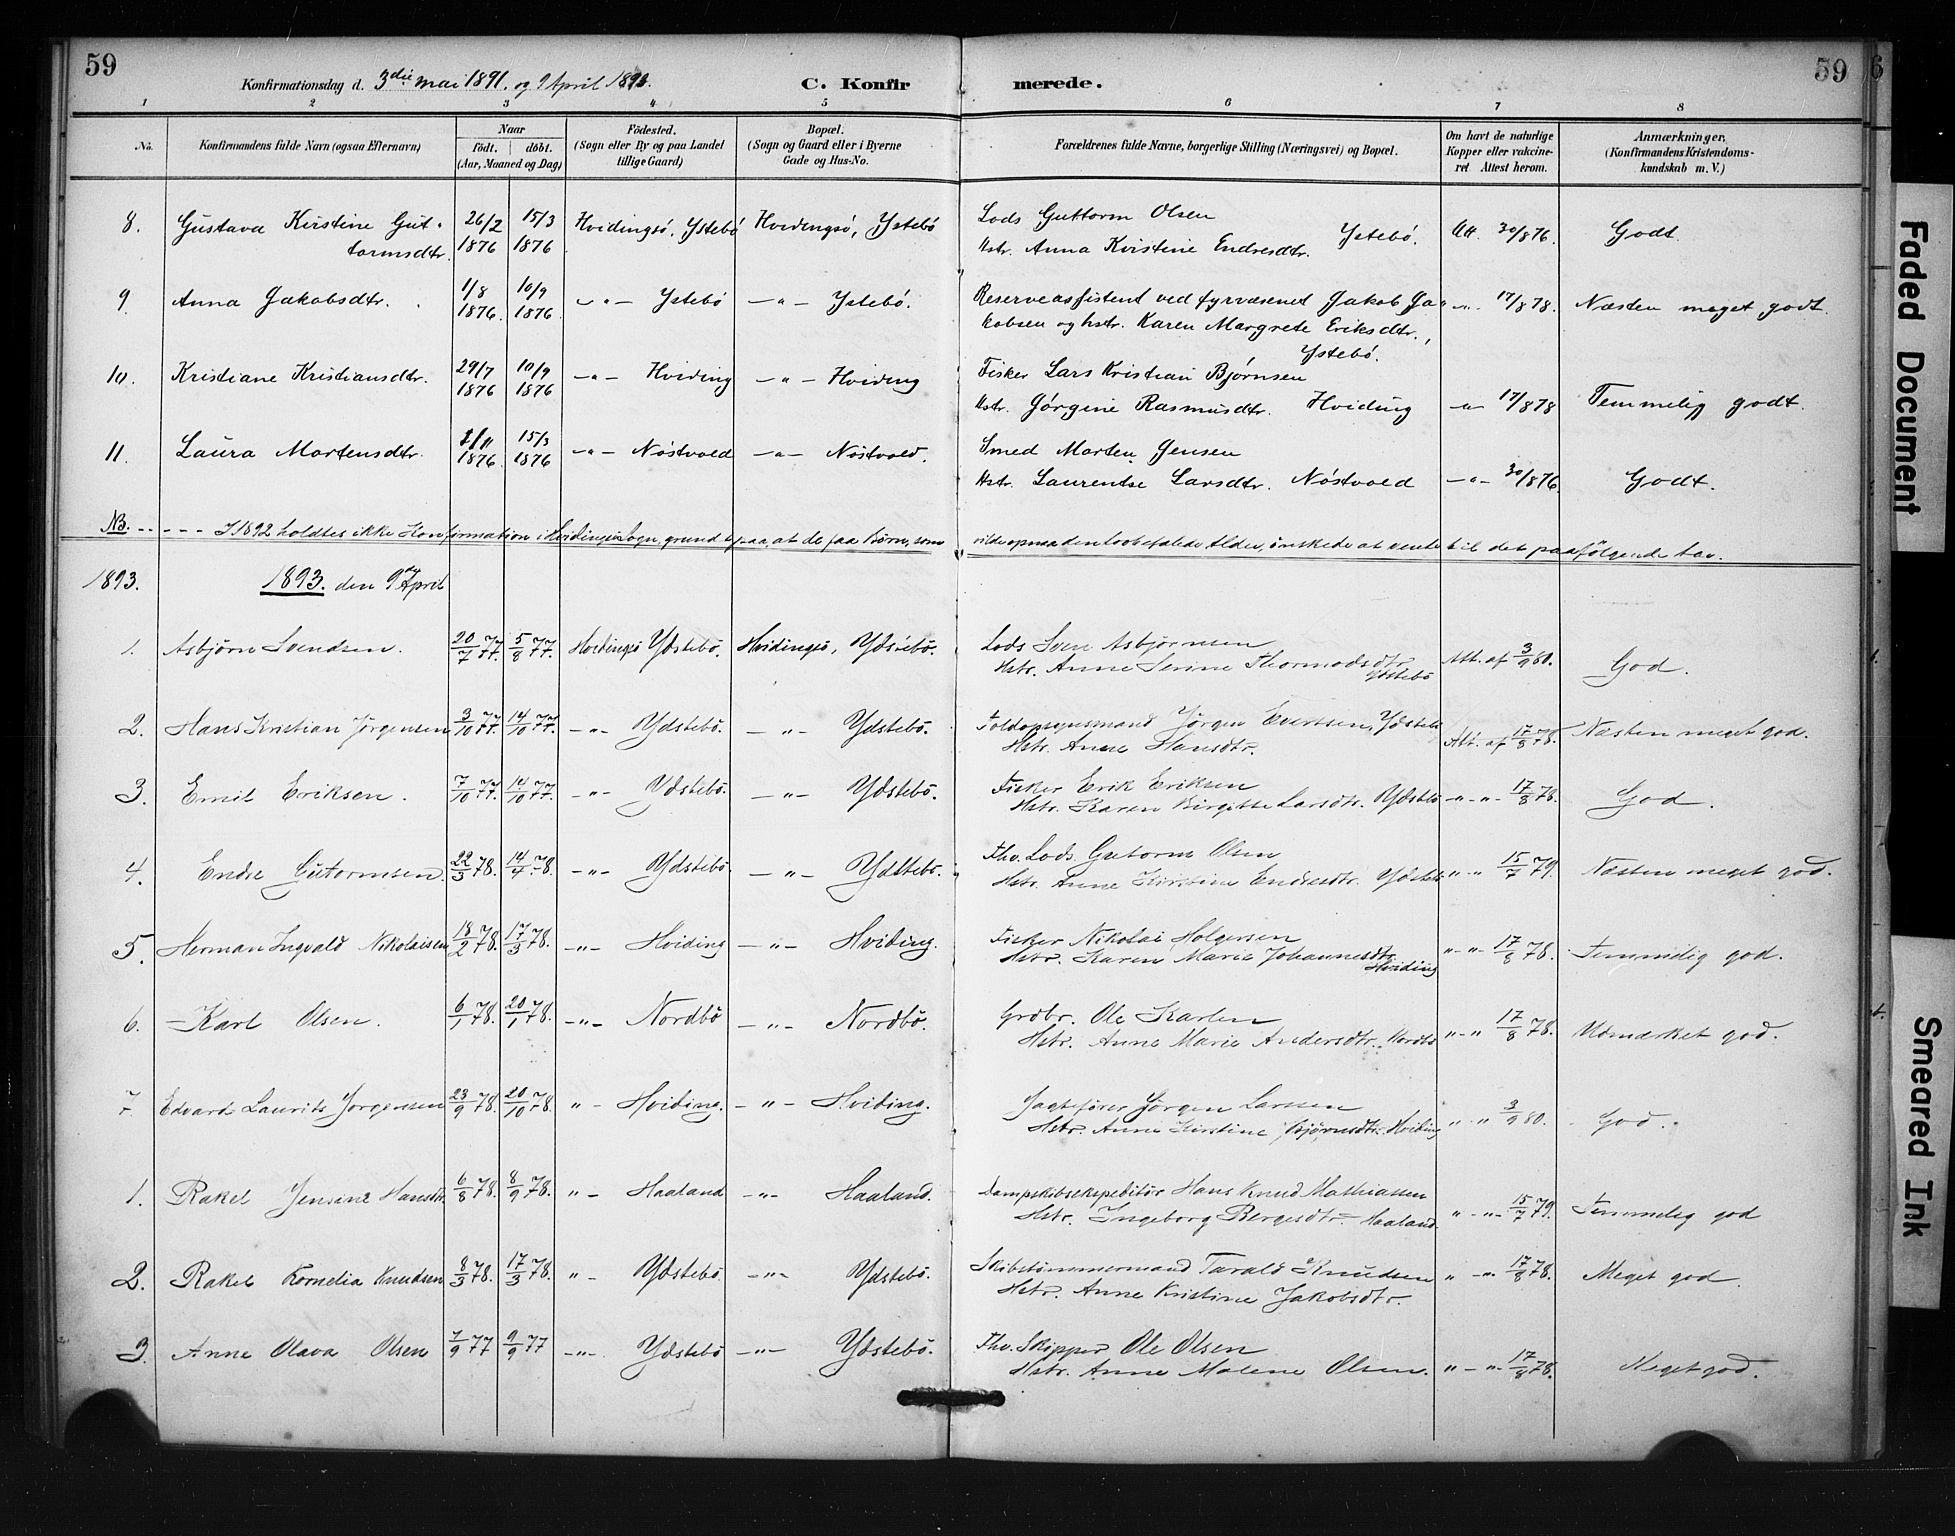 59
Konfirmationsdag d. 3die mai 1891. og 9 April 1893.
C. Konfirmerede.
59
1 2 3 4 5 6 7 8
No.
Konfirmandens fulde Navn (ogsaa Efternavn)
Naar
födt. döbt.
(Aar, Maaned og Dag)
Födested.
(Sogn eller By og paa Landet
tillige Gaard)
Bopæl.
(Sogn og Gaard eller i Byerne
Gade og Hus-No.
Forældrenes fulde Navne, borgerlige Stilling (Næringsvei) og Bopæl.
Om havt de naturlige
Kopper eller vakcine-
ret Attest herom.
Anmærkninger.
(Konfirmandens Kristendoms-
kundskab m. V.)
8. Gustava Kirstine Gut- 26/2 15/3 Hvidingsö, Ystebö Hvidingsö, Ystebö Lods Guttorm Olsen Ystebö. Att. 30/8 76. Godt.
tormsdtr. 1876 1876 Hstr. Anna Kristine Endresdtr.
9. Anna Jakobsdtr. 1/8 10/9 -"- Ystebö -"- Ystebö. Reserveassistent ved fyrvæsenet Jakob Ja- -"- 17/8 78. Næsten meget godt.
1876. 1876. kobsen og hstr. Karen Margrete Eriksdtr.,
Ystebö.
10. Kristiane Kristiansdtr. 29/7 10/9 -"- Hviding -"- Hviding Fisker Lars Kristian Bjørnsen
1876 1876 Hstr. Jørgine Rasmusdtr. Hviding -"- 17/8 78 Temmelig godt.
11. Laura Mortensdtr. 1/11 15/3 -"- Nöstvold -"- Nöstvold. Smed Morten Jensen
1876. 1876 Hstr. Laurentse Larsdtr. Nöstvold -"- 30/8 76. Godt.
NB. - - - - - I 1892 holdtes ikke Konfirmation i Hvidingsö Sogn, grundet paa, at de faa Børn, som vilde opnaa den lovbefalede Alder, ønskede at vente til det paafølgende Aar.
1893. 1893. den 9de April
1. Asbjörn Svendsen. 20/7 77. 5/8 77. Hvidingsö Ydstebö. Hvidingsö, Ydstebö. Lods Sven Asbjörnsen
Hstr. Anne Serine Thormodsdtr. Ydstebö Att. af 3/9 80. God.
2. Hans Kristian Jörgensen 3/10 77. 14/10 77. -"- Ydstebö. -"- Ydstebö. Toldopsynsmand Jörgen Evertsen, Ydstebö
Hstr. Anne Hansdtr. Att. af 17/8 78. Næsten meget god.
3. Emil Eriksen. 7/10 77. 14/10 77. -"- Ydstebö. -"- Ydstebö. Fisker Erik Eriksen
Hstr. Karen Birgitte Larsdtr. Ydstebö -"-"- 17/8 78. God.
4. Endre Gutormsen. 22/3 78. 14/4 78. -"- Ydstebö. -"- Ydstebö. Fhv. Lods Gutorm Olsen
Hstr. Anne Kirstine Endresdtr. Ydstebö "-"- 15/7 79. Næsten meget god.
5. Herman Ingvald Nikolaisen 18/2 78. 17/3 78. -"- Hviding -"- Hviding. Fisker Nikolai Holgersen
Hstr. Karen Marie Johannesdtr. Hviding "-"- 17/8 78. Temmelig god.
6. Karl Olsen. 6/1 78. 20/1 78. -"- Nordbö -"- Nordbö. Grdbr. Ole Karlsen
Hstr. Anne Marie Andersdtr. Nordbö "-"- 17/8 78. Udmærket god.
7. Edvard Laurits Jörgensen 23/9 78. 20/10 78. "- Hviding. -"- Hviding. Jagtefører Jörgen Larssen
Hstr. Anne Kirstine Björnsdtr. Hviding "-"- 3/9 80. God.
1. Rakel Jensine Hansdtr. 6/8 78. 8/9 78. "- Haaland -"- Haaland. Dampskibsekspeditör Hans Knud Mathiassen
Hstr. Ingeborg Bergesdtr. Haaland. "-"- 15/7 79. Temmelig god
2. Rakel Kornelia Knudsen 8/3 78. 17/3 78. "- Ydstebö. -"- Ydstebö. Skibstömmermand Tarald Knudsen
Hstr. Anne Kristine Jakobsdtr. "-"- 17/8 78. Meget god.
3. Anne Olava Olsen 7/9 77 9/9 77 -"- Ydstebö -"- Ydstebö. Fhv. Skipper Ole Olsen
Hstr. Anne Malene Olsen. "-"- 17/8 78. Meget god.
Faded Document
Smeared Ink